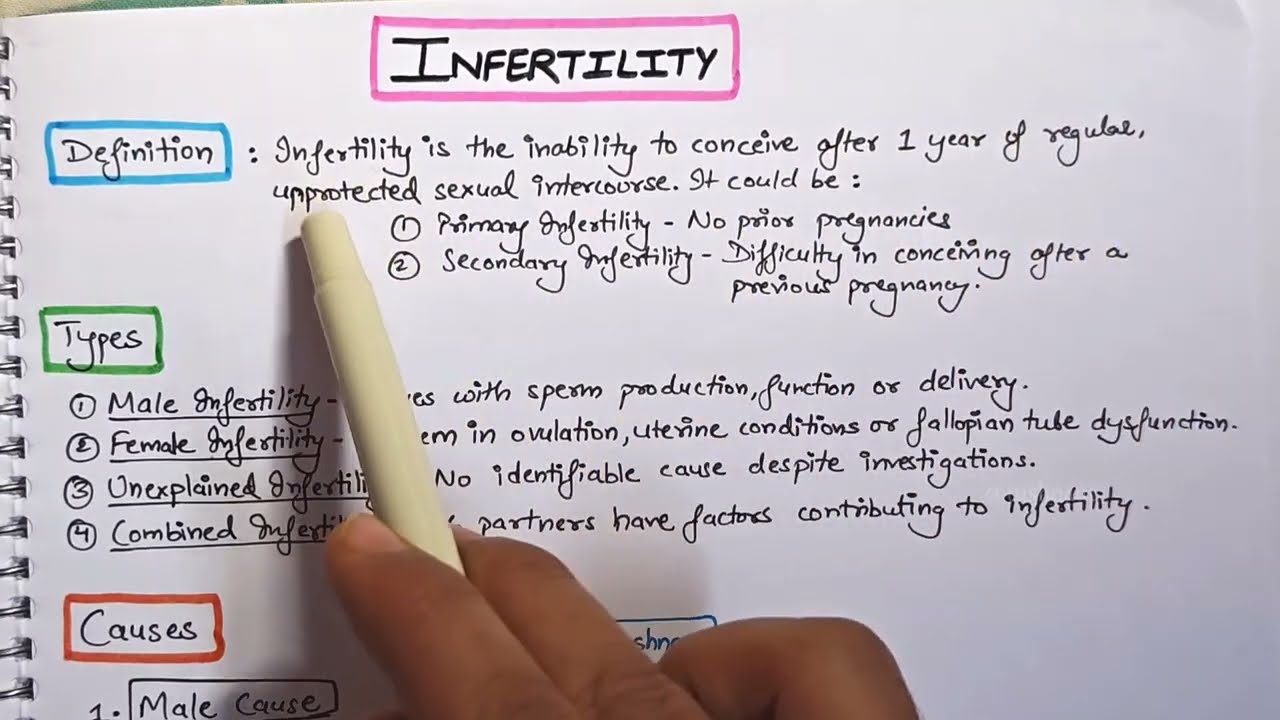 INFERTILITY
Definition : Infertility is the inability to conceive after 1 year of regular,
unprotected sexual intercourse. It could be :
① Primary Infertility - No prior pregnancies
② Secondary Infertility - Difficulty in conceiving after a
previous pregnancy.
Types
① Male Infertility - with sperm production, function or delivery.
② Female Infertility - in ovulation, uterine conditions or fallopian tube dysfunction.
③ Unexplained No identifiable cause despite investigations.
④ Combined partners have factors contributing to infertility.
Causes
1. Male Cause